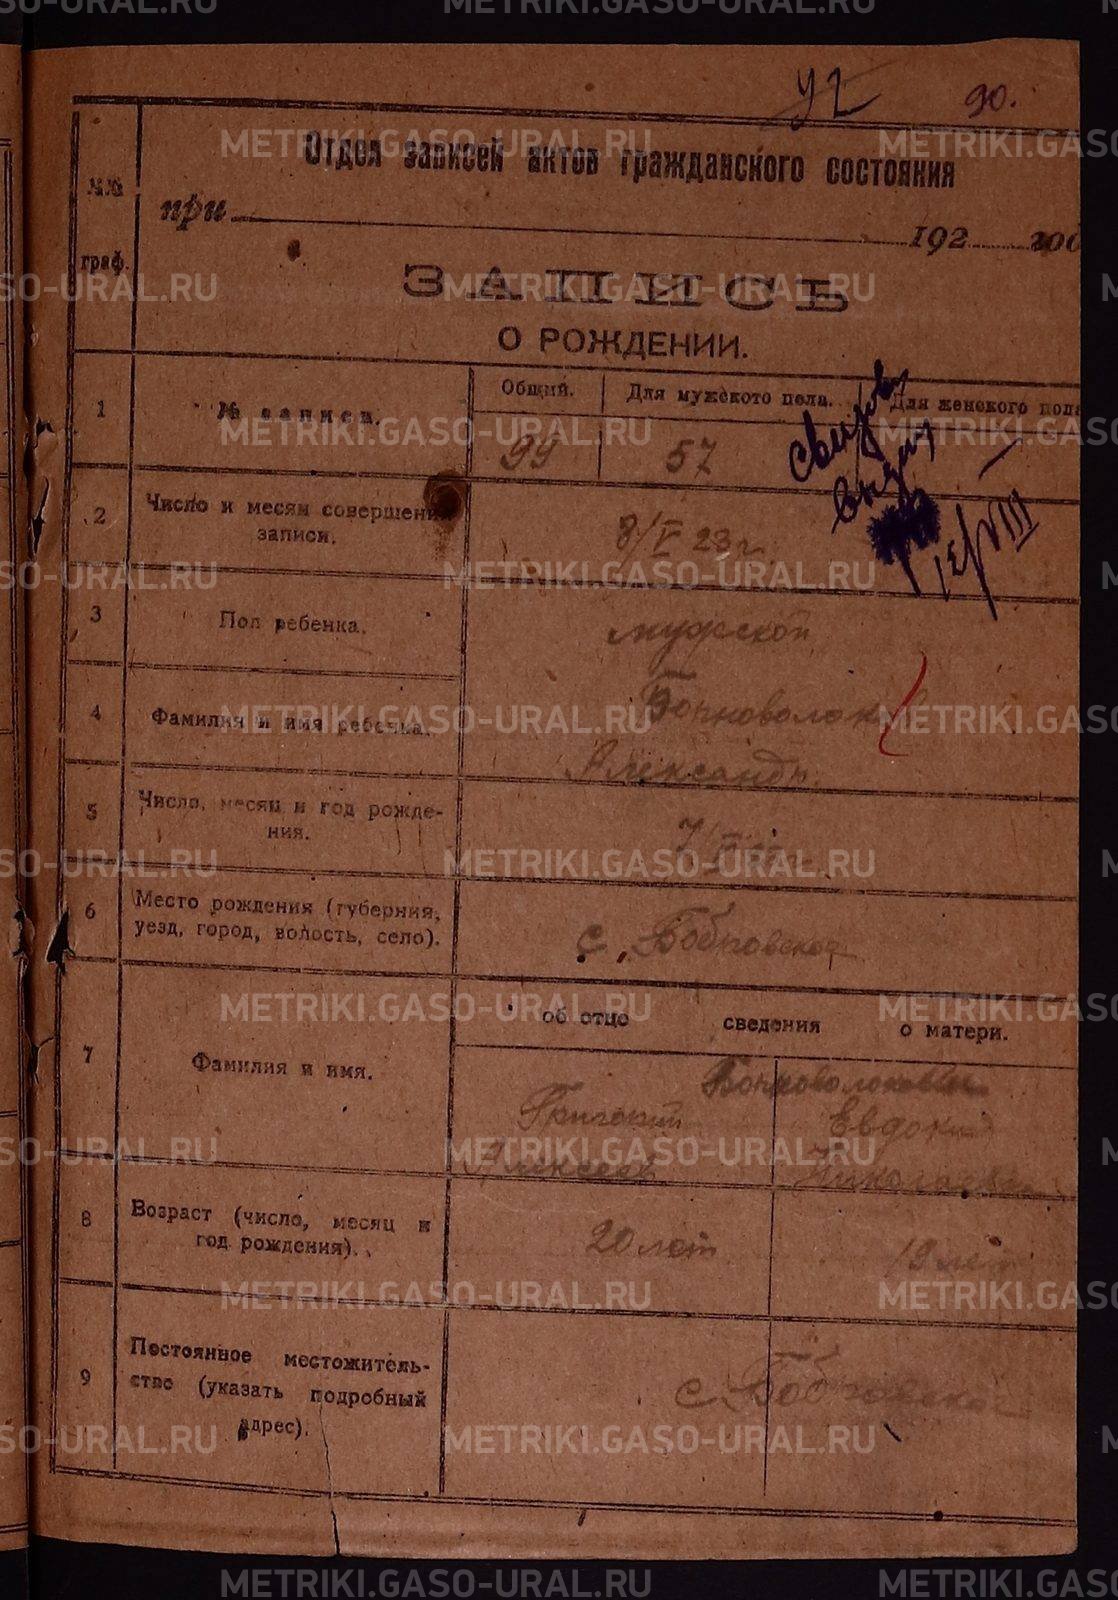 METRIKI.GASO-URAL.RU
У2 90.
Отдел записей актов гражданского состояния
№№ граф.
при 192 год
ЗАПИСЬ
О РОЖДЕНИИ.
1 № записи. Общий. Для мужского пола. Для женского пола
99 57 —
2 Число и месяц совершения
записи.
8/V 23 г.
3 Пол ребенка. мужской
4 Фамилия и имя ребенка.
Александр.
5 Число, месяц и год рожде-
ния.
6 Место рождения (губерния,
уезд, город, волость, село).
с. Бобровское
об отце сведения о матери.
7 Фамилия и имя.
Григорий Евдокия
Алексеев Николаевна
8 Возраст (число, месяц и
год рождения).
20 лет 19 лет
9 Постоянное местожитель-
ство (указать подробный
адрес).
с. Бобровское